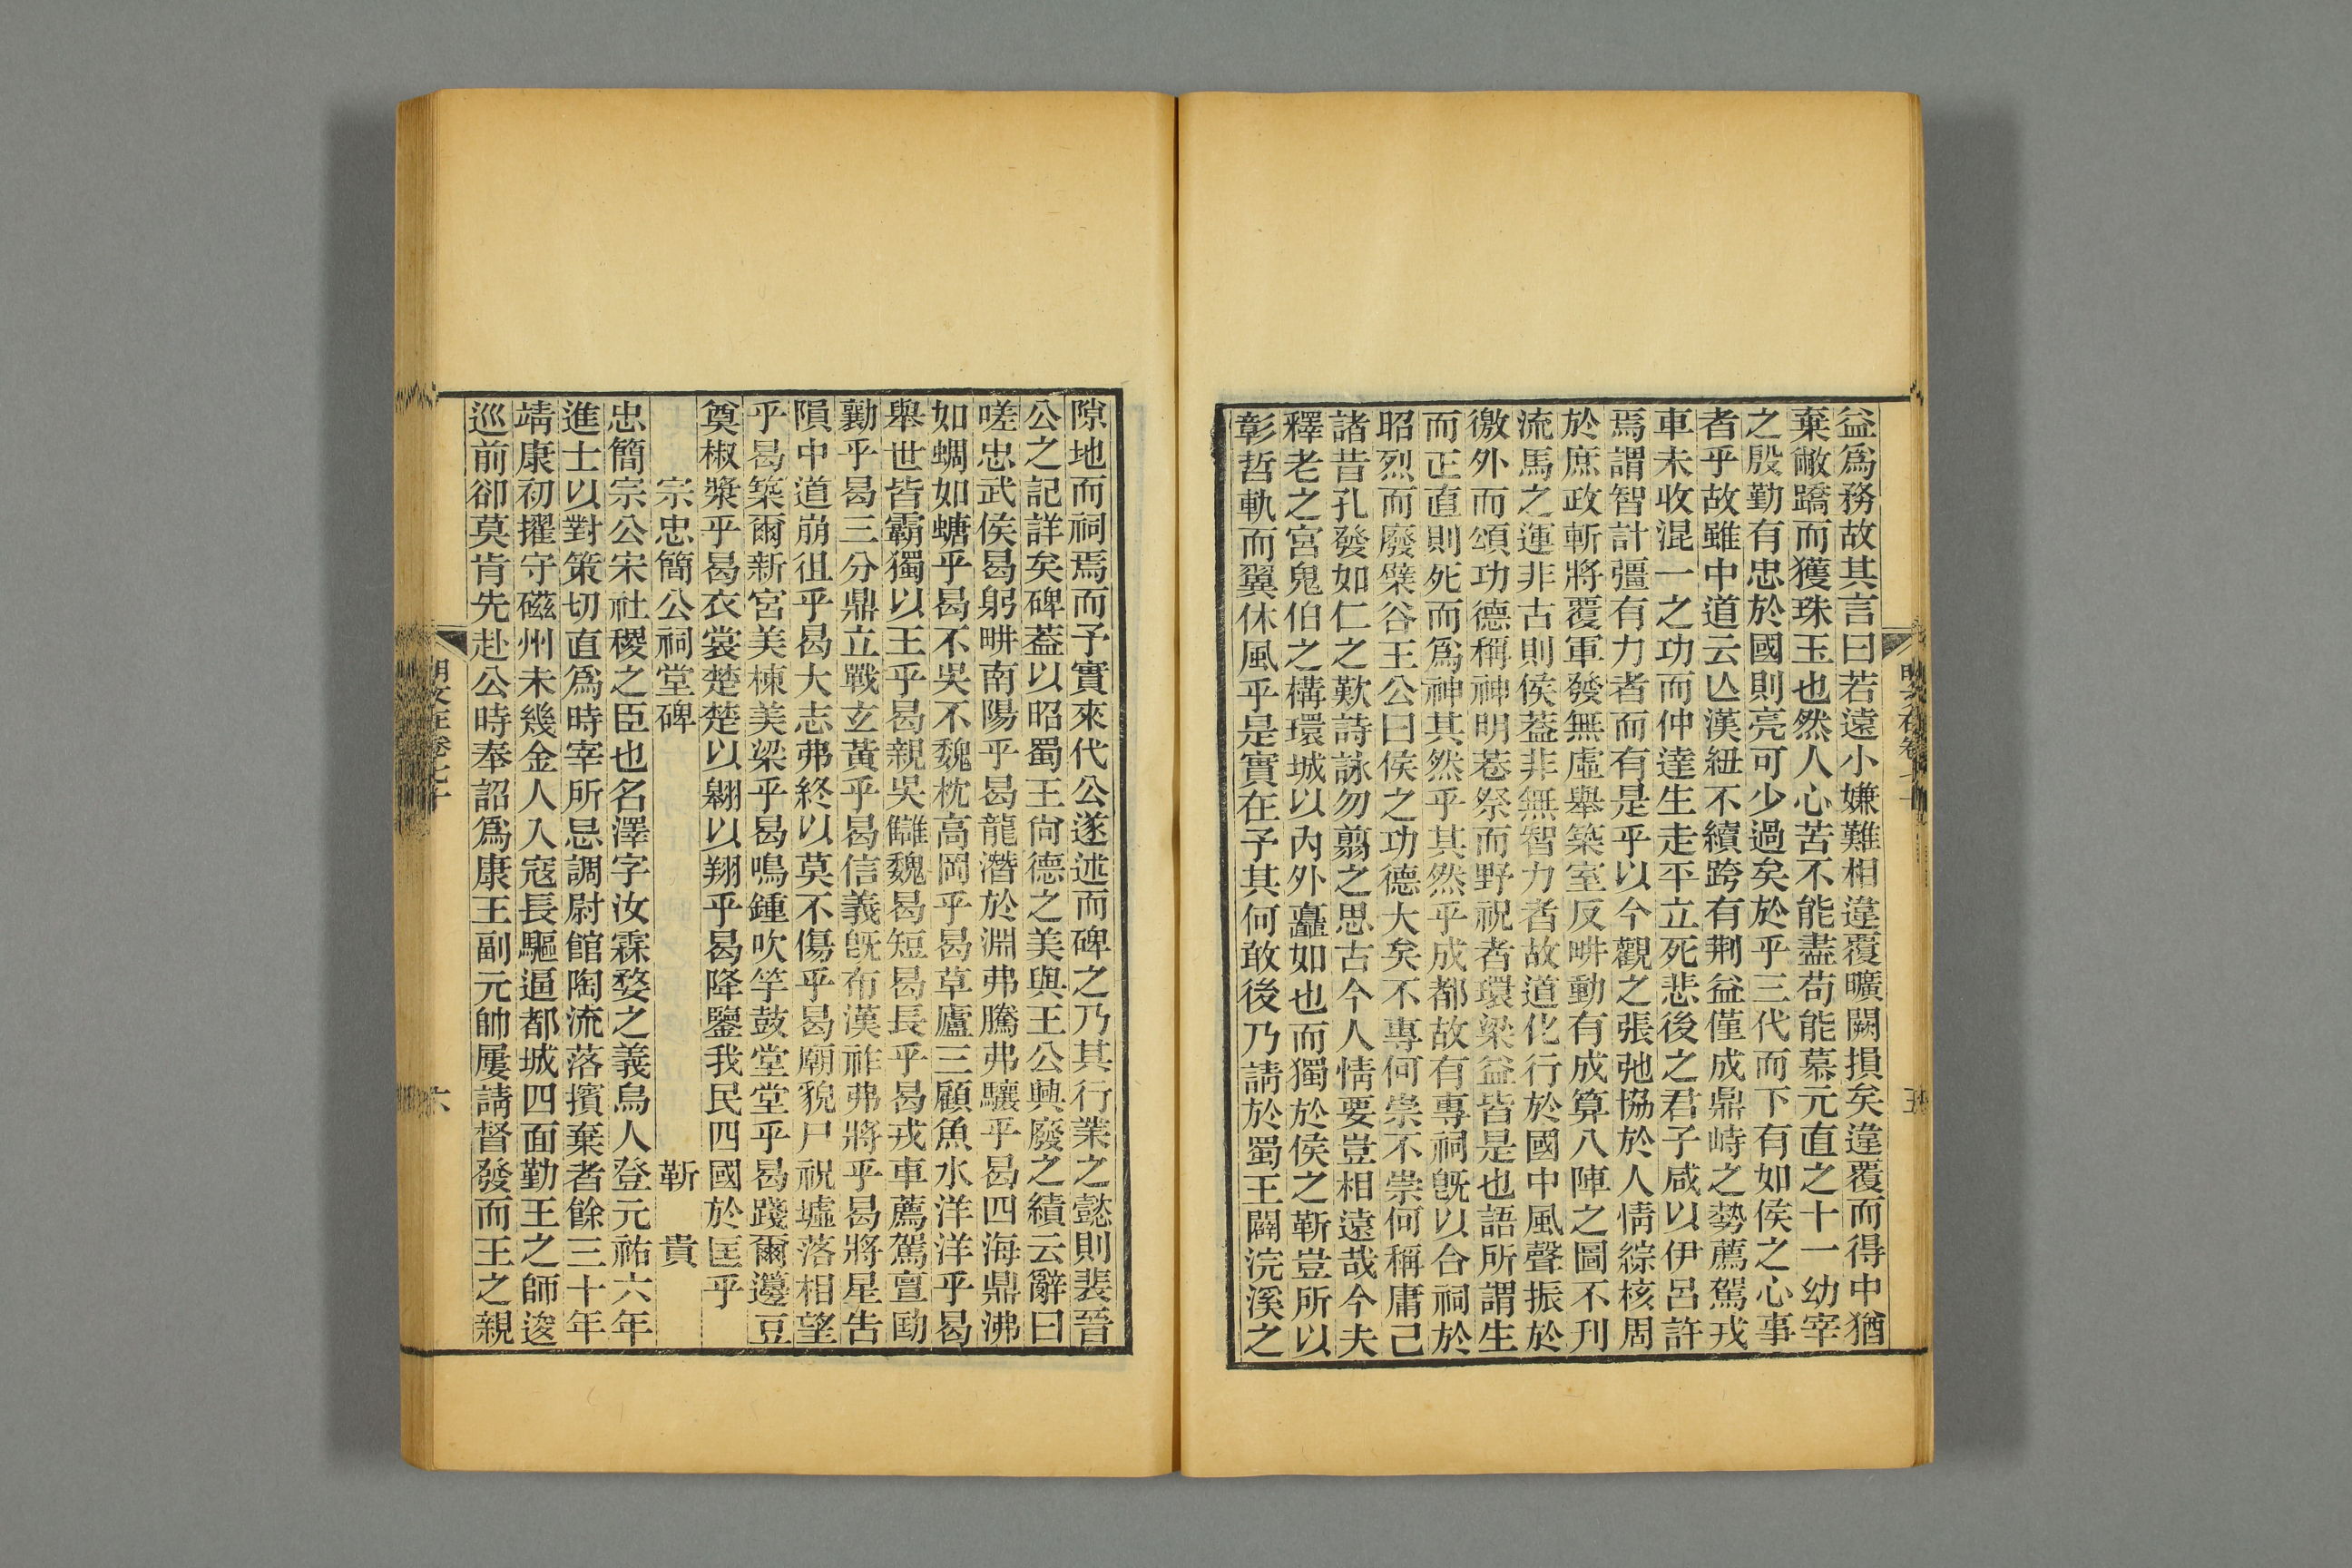 益爲務故其言曰若遠小嫌難相違覆曠闕損矣違覆而得中猶
棄敝蹻而獲珠玉也然人心苦不能盡苟能慕元直之十一幼宰
之殷勤有忠於國則亮可少過矣於乎三代而下有如侯之心事
者乎故雖中道云亾漢紐不續跨有荆益僅成鼎峙之勢薦駕戎
車未收混一之功而仲達生走平立死悲後之君子咸以伊呂許
焉謂智計彊有力者而有是乎以今觀之張弛協於人情綜核周
於庶政斬將覆軍發無虛舉築室反畊動有成算八陣之圖不刋
流馬之運非古則侯葢非無智力者故道化行於國中風聲振於
徼外而頌功德稱神明巷祭而野祝者環梁益皆是也語所謂生
而正直則死而爲神其然乎其然乎成都故有專祠旣以合祠於
昭烈而廢檗谷王公曰侯之功德大矣不專何祟不崇何稱庸己
諸昔孔發如仁之歎詩詠勿翦之思古今人情要豈相遠哉今夫
釋老之宮鬼伯之構環城以內外矗如也而獨於侯之靳豈所以
彰哲軌而翼休風乎是實在予其何敢後乃請於蜀王闢浣溪之
隙地而祠焉而予實來代公遂述而碑之乃其行業之懿則裴晉
公之記詳矣碑葢以昭蜀王尙德之美與王公興廢之績云辭曰
嗟忠武侯曷躬畊南陽乎曷龍潛於淵弗騰弗驤乎曷四海鼎沸
如蜩如螗乎曷不吳不魏枕高岡乎曷草廬三顧魚水洋洋乎曷
舉世皆霸獨以王乎曷親吳讎魏曷短曷長乎曷戎車薦駕亶劻
勷乎曷三分鼎立戰玄黃乎曷信義旣布漢祚弗將乎曷將星告
隕中道崩徂乎曷大志弗終以莫不傷乎曷廟貌尸祝墟落相望
乎曷築爾新宮美棟美梁乎曷鳴鍾吹竽鼓堂堂乎曷踐爾籩豆
奠椒漿乎曷衣裳楚楚以翺以翔乎曷降鑒我民四國於匡乎
宗忠簡公祠堂碑　靳貴
忠簡宗公宋社稷之臣也名澤字汝霖婺之義烏人登元祐六年
進士以對策切直爲時宰所忌調尉館陶流落擯棄者餘三十年
靖康初擢守磁州未幾金人入寇長驅逼都城四面勤王之師逡
巡前卻莫肯先赴公時奉詔爲康王副元帥屢請督發而王之親
明文在卷七十
六